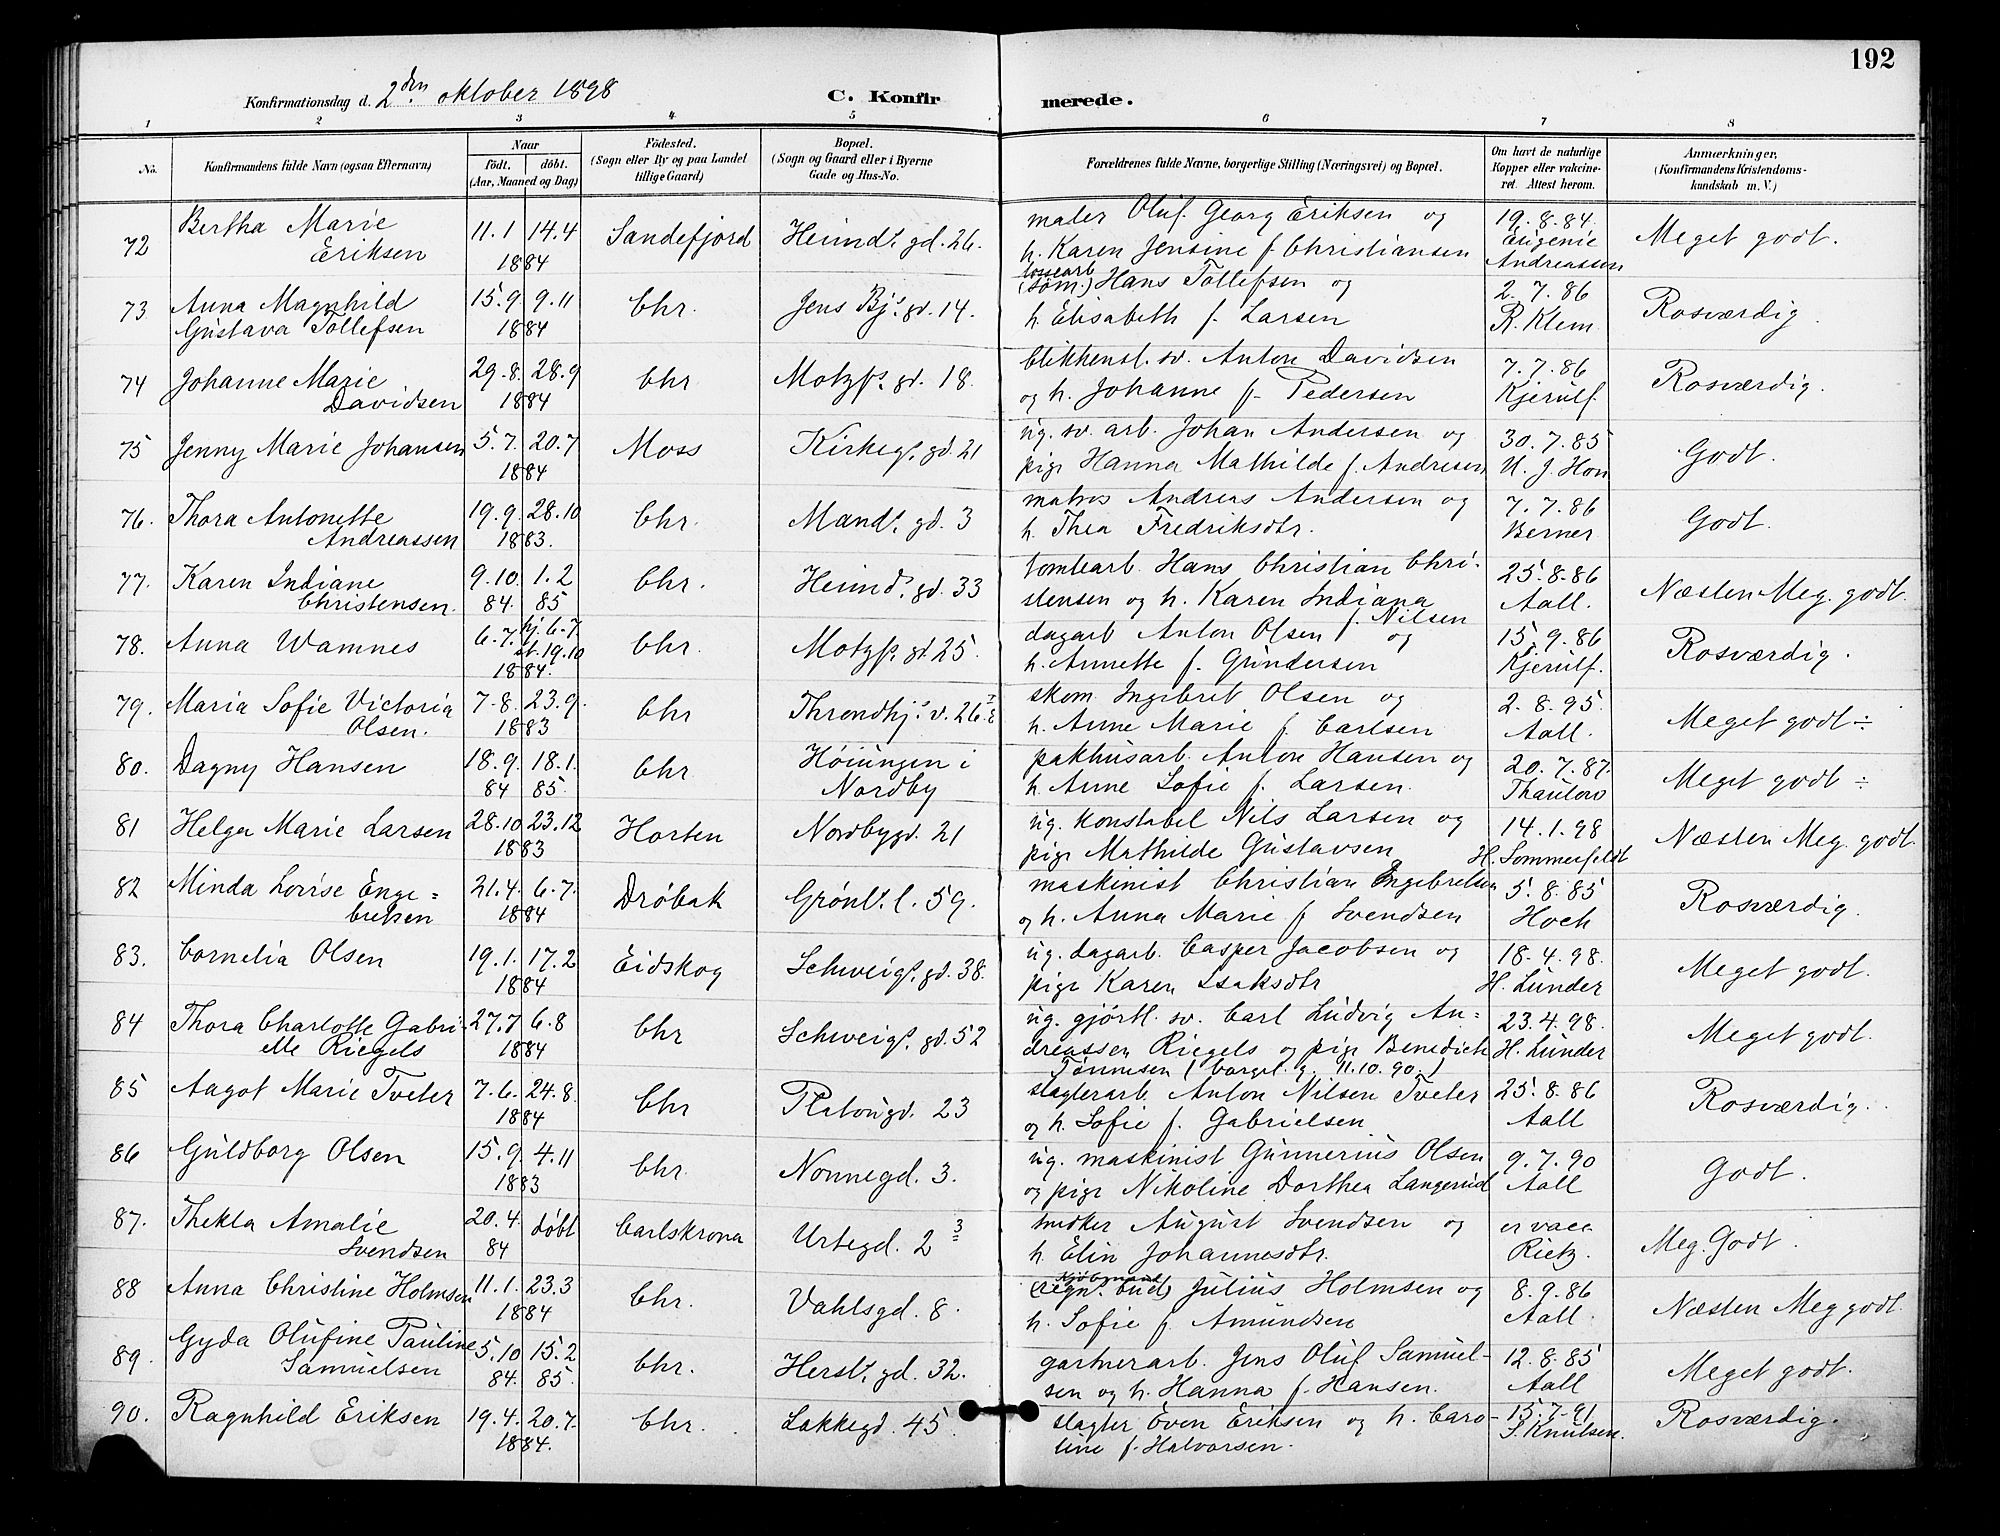 192
Konfirmationsdag d. 2den oktober 1898 C. Konfirmerede.
1 2 3 4 5 6 7 8
No. Konfirmandens fulde Navn (ogsaa Efternavn) Naar født. døbt. (Aar, Maaned og Dag) Fødested. (Sogn eller By og paa Landet tillige Gaard) Bopæl. (Sogn og Gaard eller i Byerne Gade og Hus-No. Forældrenes fulde Navne, borgerlige Stilling (Næringsvei) og Bopæl. Om havt de naturlige Kopper eller vakcineret. Attest herom. Anmærkninger, (Konfirmandens Kristendomskundskab m. V.)
72 Bertha Marie Eriksen 11.1 14.4 1884 Sandefjord Heimds. gd. 26. maler Oluf Georg Eriksen og
h. Karen Jensine f Christiansen 19.8.84. Eugenie Andreassen Meget godt.
73 Anna Magnhild Gustava Tollefsen 15.9. 9.11 1884 Chr. Jens Bjs. gd. 14. lossearb (søm.) Hans Tollefsen og
h. Elisabeth f. Larsen 2.7.86 R. Klem Rosværdig.
74 Johanne Marie Davidsen 29.8. 28.9 1884 Chr Motzfs. gd. 18. blikkensl. sv. Anton Davidsen
og h. Johanne f. Pedersen 7.7.86 Kjerulf. Rosværdig.
75 Jenny Marie Johansen 5.7. 20.7 1884 Moss Kirkegs. gd. 21 ug. sv. arb. Johan Andersen og
pige Hanna Mathilde f. Andresen 30.7.85 Godt.
76. Thora Antonette Andreassen 19.9. 28.10 1883. Chr. Mands. gd. 3 matros Andreas Andersen og
h. Thea Fredriksdtr. 7.7.86 Berner Godt.
77. Karen Indiane Christensen. 9.10. 84. 1.2 85 Chr. Heimds. gd. 33 tomtearb. Hans Christian Christensen
og h. Karen Indiana f. Nilsen 25.8.86 Aall. Næsten Meg. godt.
78. Anna Wamnes 6.7. hj. 6.7. st. 19.10 1884. Chr. Motzfs. gd. 25. dagarb Anton Olsen og
h. Annette f. Gundersen 15.9.86 Kjerulf. Rosværdig.
79. Maria Sofie Victoria Olsen. 7.8. 23.9. 1883 Chr Throndhjs. v. 26. skom. Ingebret Olsen og
h. Anne Marie f. Carlsen 2.8.95. Aall. Meget godt ÷
80. Dagny Hansen 18.9. 84 18.1. 85. Chr Høiungen i Nordby pakhusarb. Anton Hansen og
h. Anne Sofie f. Larsen. 20.7.87. Thaulow Meget godt ÷
81 Helga Marie Larsen 28.10 23.12 1883 Horten Nordbygd. 21 ug. konstabel Nils Larsen og
pige Mathilde Gustavsen 14.1.98 H. Sommerfeldt Næsten Meg. godt.
82 Minda Lovise Engebretsen 21.4. 6.7. 1884 Drøbak Grønls. l. 59. maskinist Christian Engebretsen
og h. Anna Marie f Svendsen 5.8.85 Hoch Rosværdig.
83. Cornelia Olsen 19.1. 17.2 1884 Eidskog Schweigs. gd. 38. ug. dagarb. Casper Jacobsen og
pige Karen Isaksdtr 18.4.98. H. Lunder Meget godt.
84 Thora Charlotte Gabrielle Riegels 27.7 6.8 1884 Chr Schweigs. gd. 52 ug. gjørtl. sv. Carl Ludvig Andreassen
Riegels og pige Benedicte
Tønnesen (borgl. g. 11.10.90.) 23.4.98. H. Lunder Meget godt.
85 Aagot Marie Tveter 7.6. 24.8. 1884 Chr Platougd. 23 slagterarb. Anton Nilsen Tveter
og h. Sofie f. Gabrielsen 25.8.86 Aall Rosværdig.
86 Guldborg Olsen 15.9. 4.11 1883 Chr. Nonnegd. 3. ug. maskinist Gunnerius Olsen
og pige Nikoline Dorthea Langerud 9.7.90 Aall Godt.
87. Thekla Amalie Svendsen 20.4. 84 døbt Carlskrona Urtegd. 2 3 snedker August Svendsen og
h. Elin Johannesdtr. er vacc Rietz. Meg. Godt.
88 Anna Christine Holmsen 11.1. 23.3 1884 Chr. Vahlsgd. 8. kjøbmand (regn. bud) Julius Holmsen og
h. Sofie f. Amundsen 8.9.86 Aall. Næsten Meg godt.
89. Gyda Olufine Pauline Samuelsen 5.10 84. 15.2 85. Chr. Hersls. gd. 32. gartnerarb. Jens Oluf Samuelsen
og h. Hanna f. Hansen. 12.8.85 Aall Meget godt.
90. Ragnhild Eriksen 19.4. 20.7. 1884. Chr. Lakkegd. 45. slagter Even Eriksen og h. Caroline
f. Halvorsen. 15.7.91 S. Knutsen. Rosværdig.